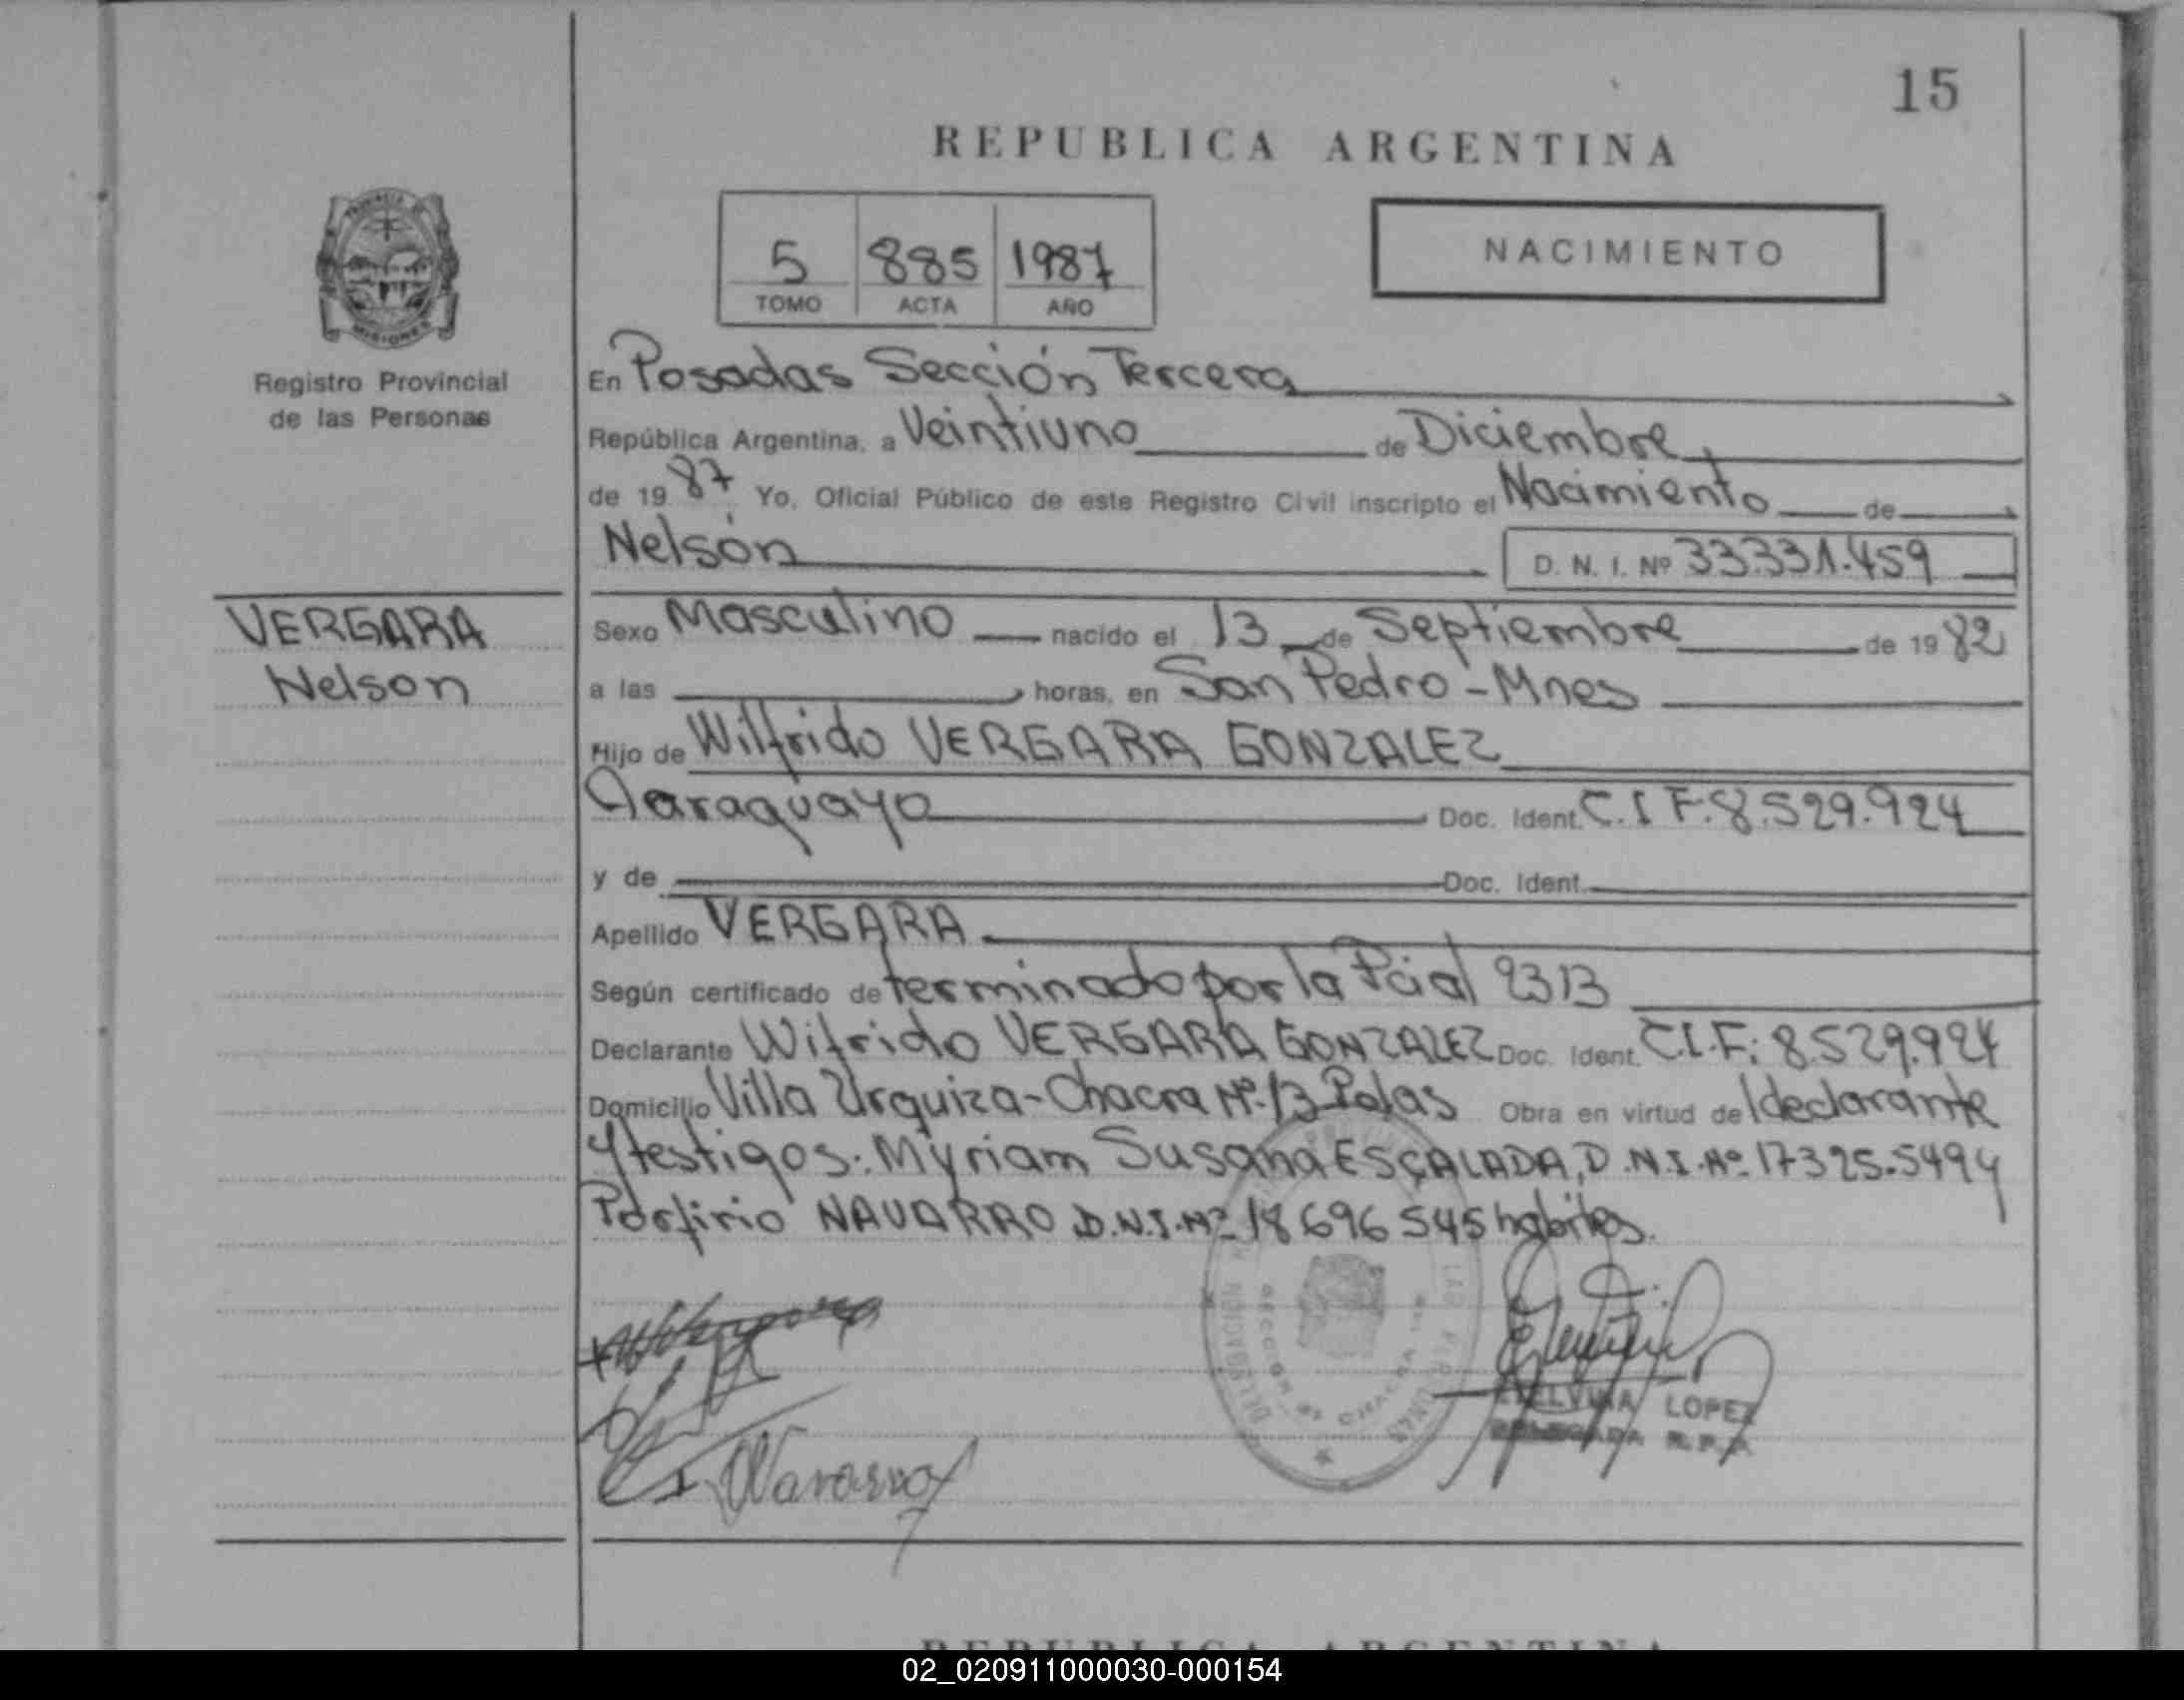 15
REPUBLICA ARGENTINA
5 885 1987
TOMO ACTA AÑO
NACIMIENTO
MISIONES
Registro Provincial
de las Personas
En Posadas Sección Tercera
República Argentina, a Veintiuno de Diciembre
de 1987 Yo, Oficial Público de este Registro Civil inscripto el Nacimiento de
Nelsón D. N. I. Nº 33.331.459
VERGARA
Nelson
Sexo Masculino nacido el 13 de Septiembre de 1982
a las horas, en San Pedro - Mnes
Hijo de Wilfrido VERGARA GONZALEZ
Paraguayo Doc. Ident. C.I F: 8.529.924
y de Doc. Ident.
Apellido VERGARA
Según certificado determinado por la Pcial 2313
Declarante Wilfrido VERGARA GONZALEZ Doc. Ident. C.I.F: 8.529.924
Domicilio Villa Urquiza - Chacra Nº 13 Pdas Obra en virtud del declarante
y testigos: Myriam Susana ESCALADA, D.N.I. Nº 17325.549 y
Porfirio NAVARRO D.N.I. Nº 18696545 habiles.
Navarro
LOPEZ
DELEGADA R. P. P.
REPUBLICA ARGENTINA
02_020911000030-000154